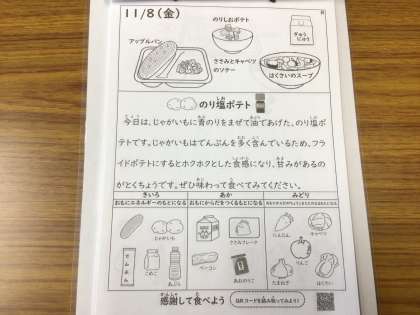 11/8(金)
のりしおポテト
ぎゅうにゅう
アップルパン
ささみとキャベツのソテー
はくさいのスープ
のり塩ポテト
今日は、じゃがいもに青のりをまぜて油であげた、のり塩ポ
テトです。じゃがいもはでんぷんを多く含んでいるため、フラ
イドポテトにするとホクホクとした食感になり、甘みがあるの
がとくちょうです。ぜひ味わって食べてみてください。
きいろ あか みどり
おもにエネルギーのもとになる おもにからだをつくるもとになる
じゃがいも ささみフレーク にんじん キャベツ
こめこ あぶら ベーコン あおのりこ りんご
たまねぎ はくさい
感謝して食べよう QRコードを読み取ってみよう!